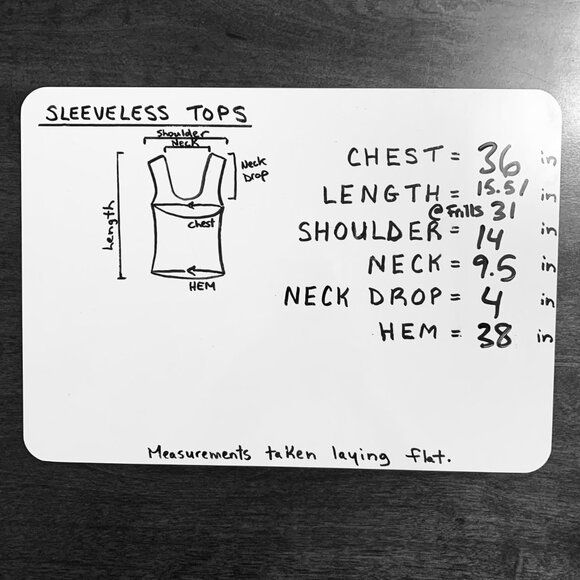 SLEEVELESS TOPS
Shoulder
Neck
Neck
Drop
Length
Chest
HEM
CHEST = 36 in
LENGTH = 15.5/ in
@ Frills 31
SHOULDER = 14 in
NECK = 9.5 in
NECK DROP = 4 in
HEM = 38 in
Measurements taken laying flat.